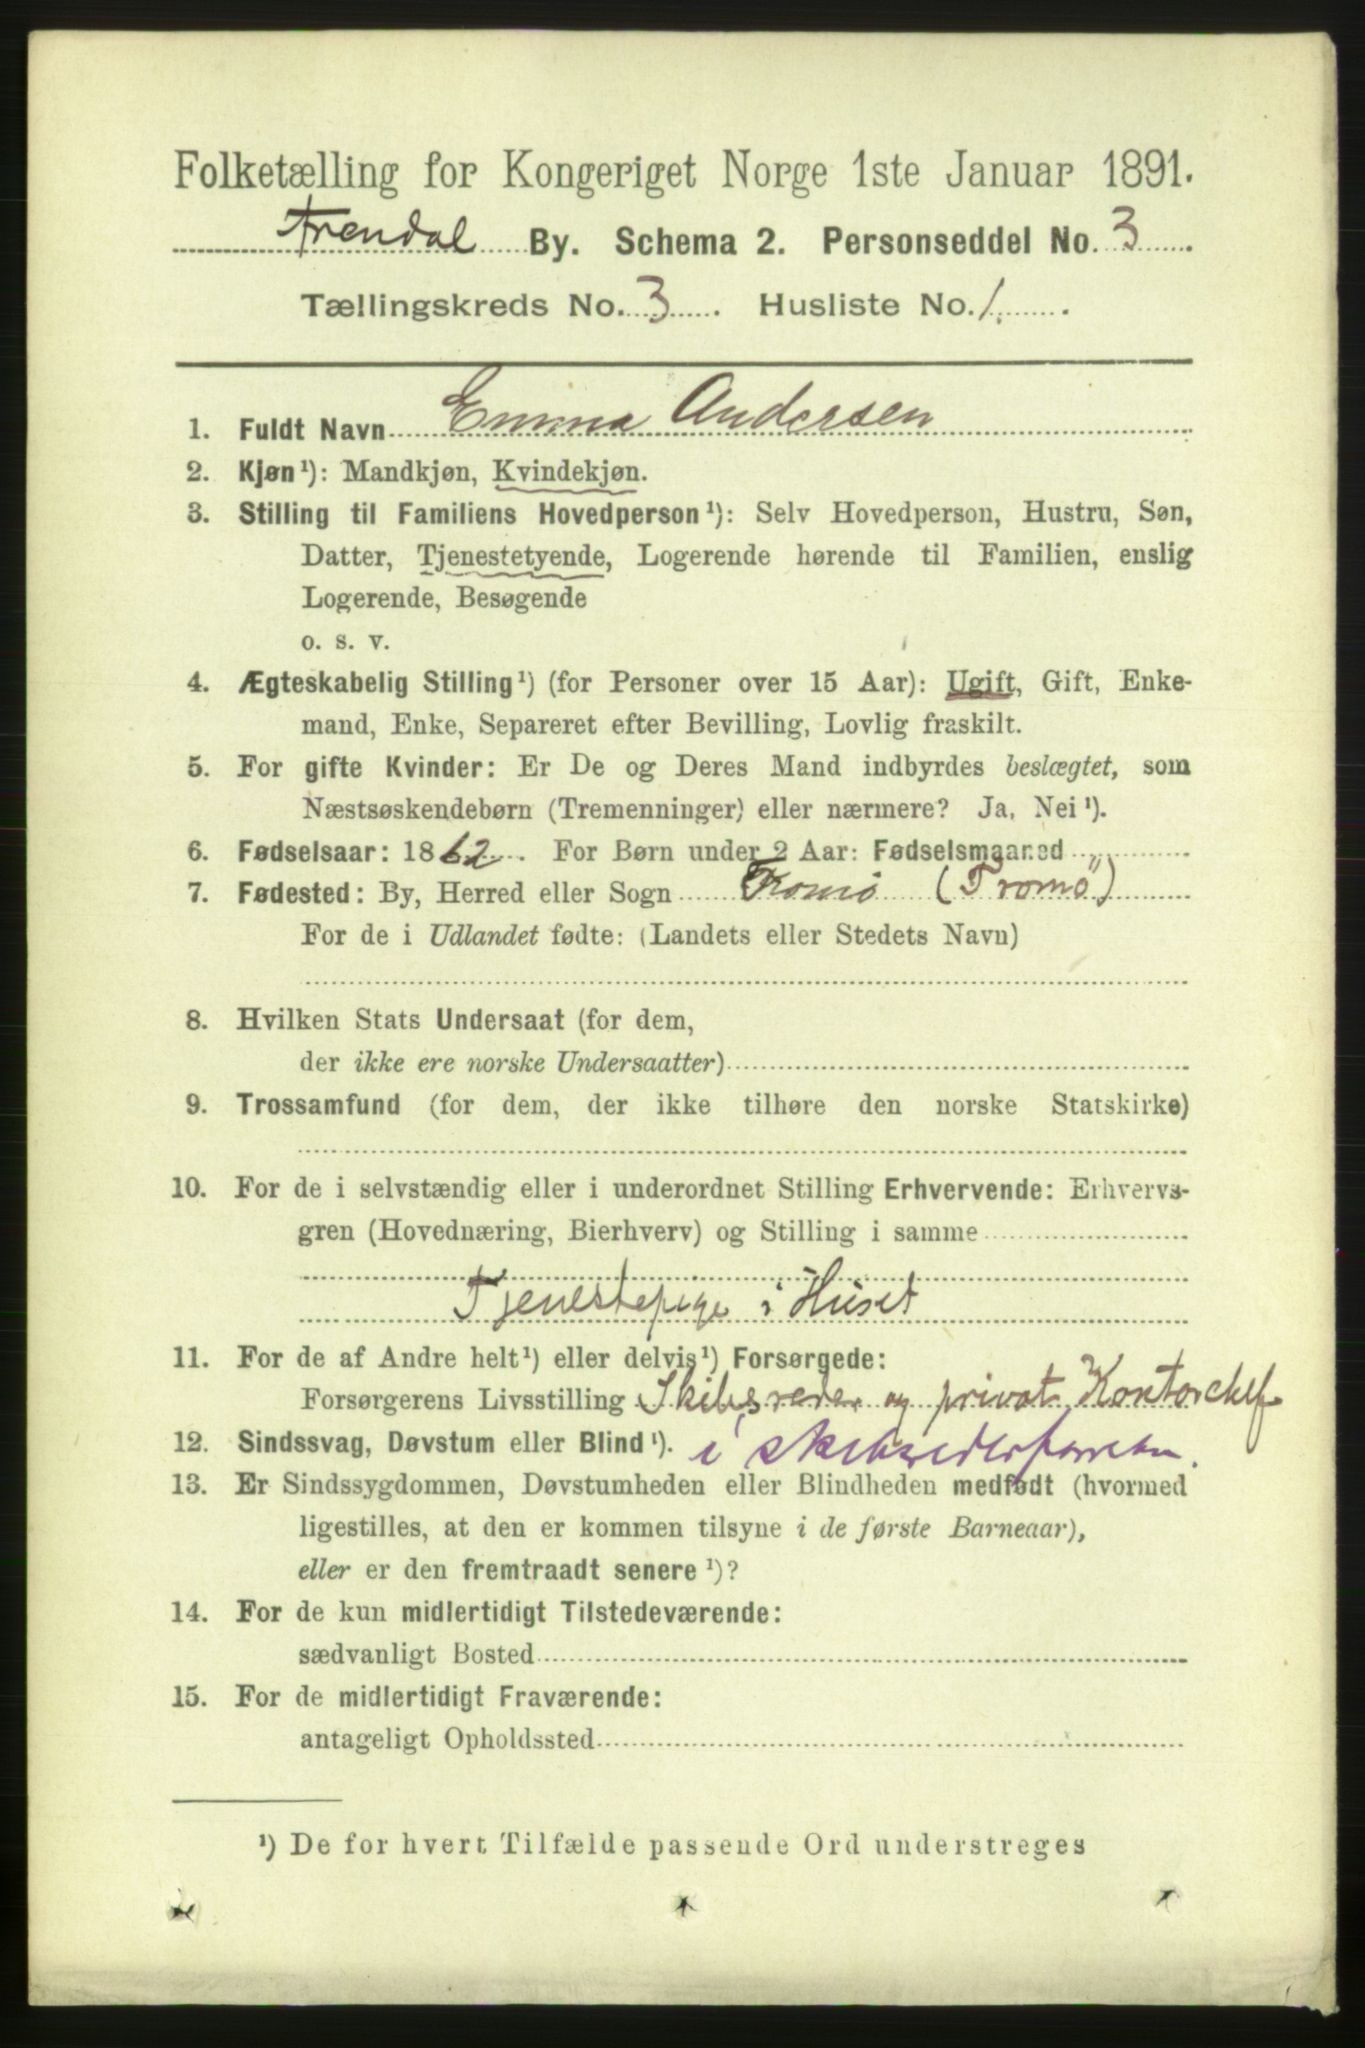 Folketælling for Kongeriget Norge 1ste Januar 1891.
Arendal By. Schema 2. Personseddel No. 3
Tællingskreds No. 3. Husliste No. 1.
1. Fuldt Navn Emma Andersen
2. Kjøn¹): Mandkjøn, Kvindekjøn.
3. Stilling til Familiens Hovedperson¹): Selv Hovedperson, Hustru, Søn,
Datter, Tjenestetyende, Logerende hørende til Familien, enslig
Logerende, Besøgende
o. s. v.
4. Ægteskabelig Stilling¹) (for Personer over 15 Aar): Ugift, Gift, Enke-
mand, Enke, Separeret efter Bevilling, Lovlig fraskilt.
5. For gifte Kvinder: Er De og Deres Mand indbyrdes beslægtet, som
Næstsøskendebørn (Tremenninger) eller nærmere? Ja, Nei¹).
6. Fødselsaar: 1862. For Børn under 2 Aar: Fødselsmaaned
7. Fødested: By, Herred eller Sogn Tromø (Tromö)
For de i Udlandet fødte: (Landets eller Stedets Navn)
8. Hvilken Stats Undersaat (for dem,
der ikke ere norske Undersaatter)
9. Trossamfund (for dem, der ikke tilhøre den norske Statskirke)
10. For de i selvstændig eller i underordnet Stilling Erhvervende: Erhvervs-
gren (Hovednæring, Bierhverv) og Stilling i samme
Tjenestepige i Huset
11. For de af Andre helt¹) eller delvis¹) Forsørgede:
Forsørgerens Livsstilling Skibsreder og privat Kontorchef
12. Sindssvag, Døvstum eller Blind¹). i skibsrederforretn.
13. Er Sindssygdommen, Døvstumheden eller Blindheden medfødt (hvormed
ligestilles, at den er kommen tilsyne i de første Barneaar),
eller er den fremtraadt senere¹)?
14. For de kun midlertidigt Tilstedeværende:
sædvanligt Bosted
15. For de midlertidigt Fraværende:
antageligt Opholdssted
¹) De for hvert Tilfælde passende Ord understreges